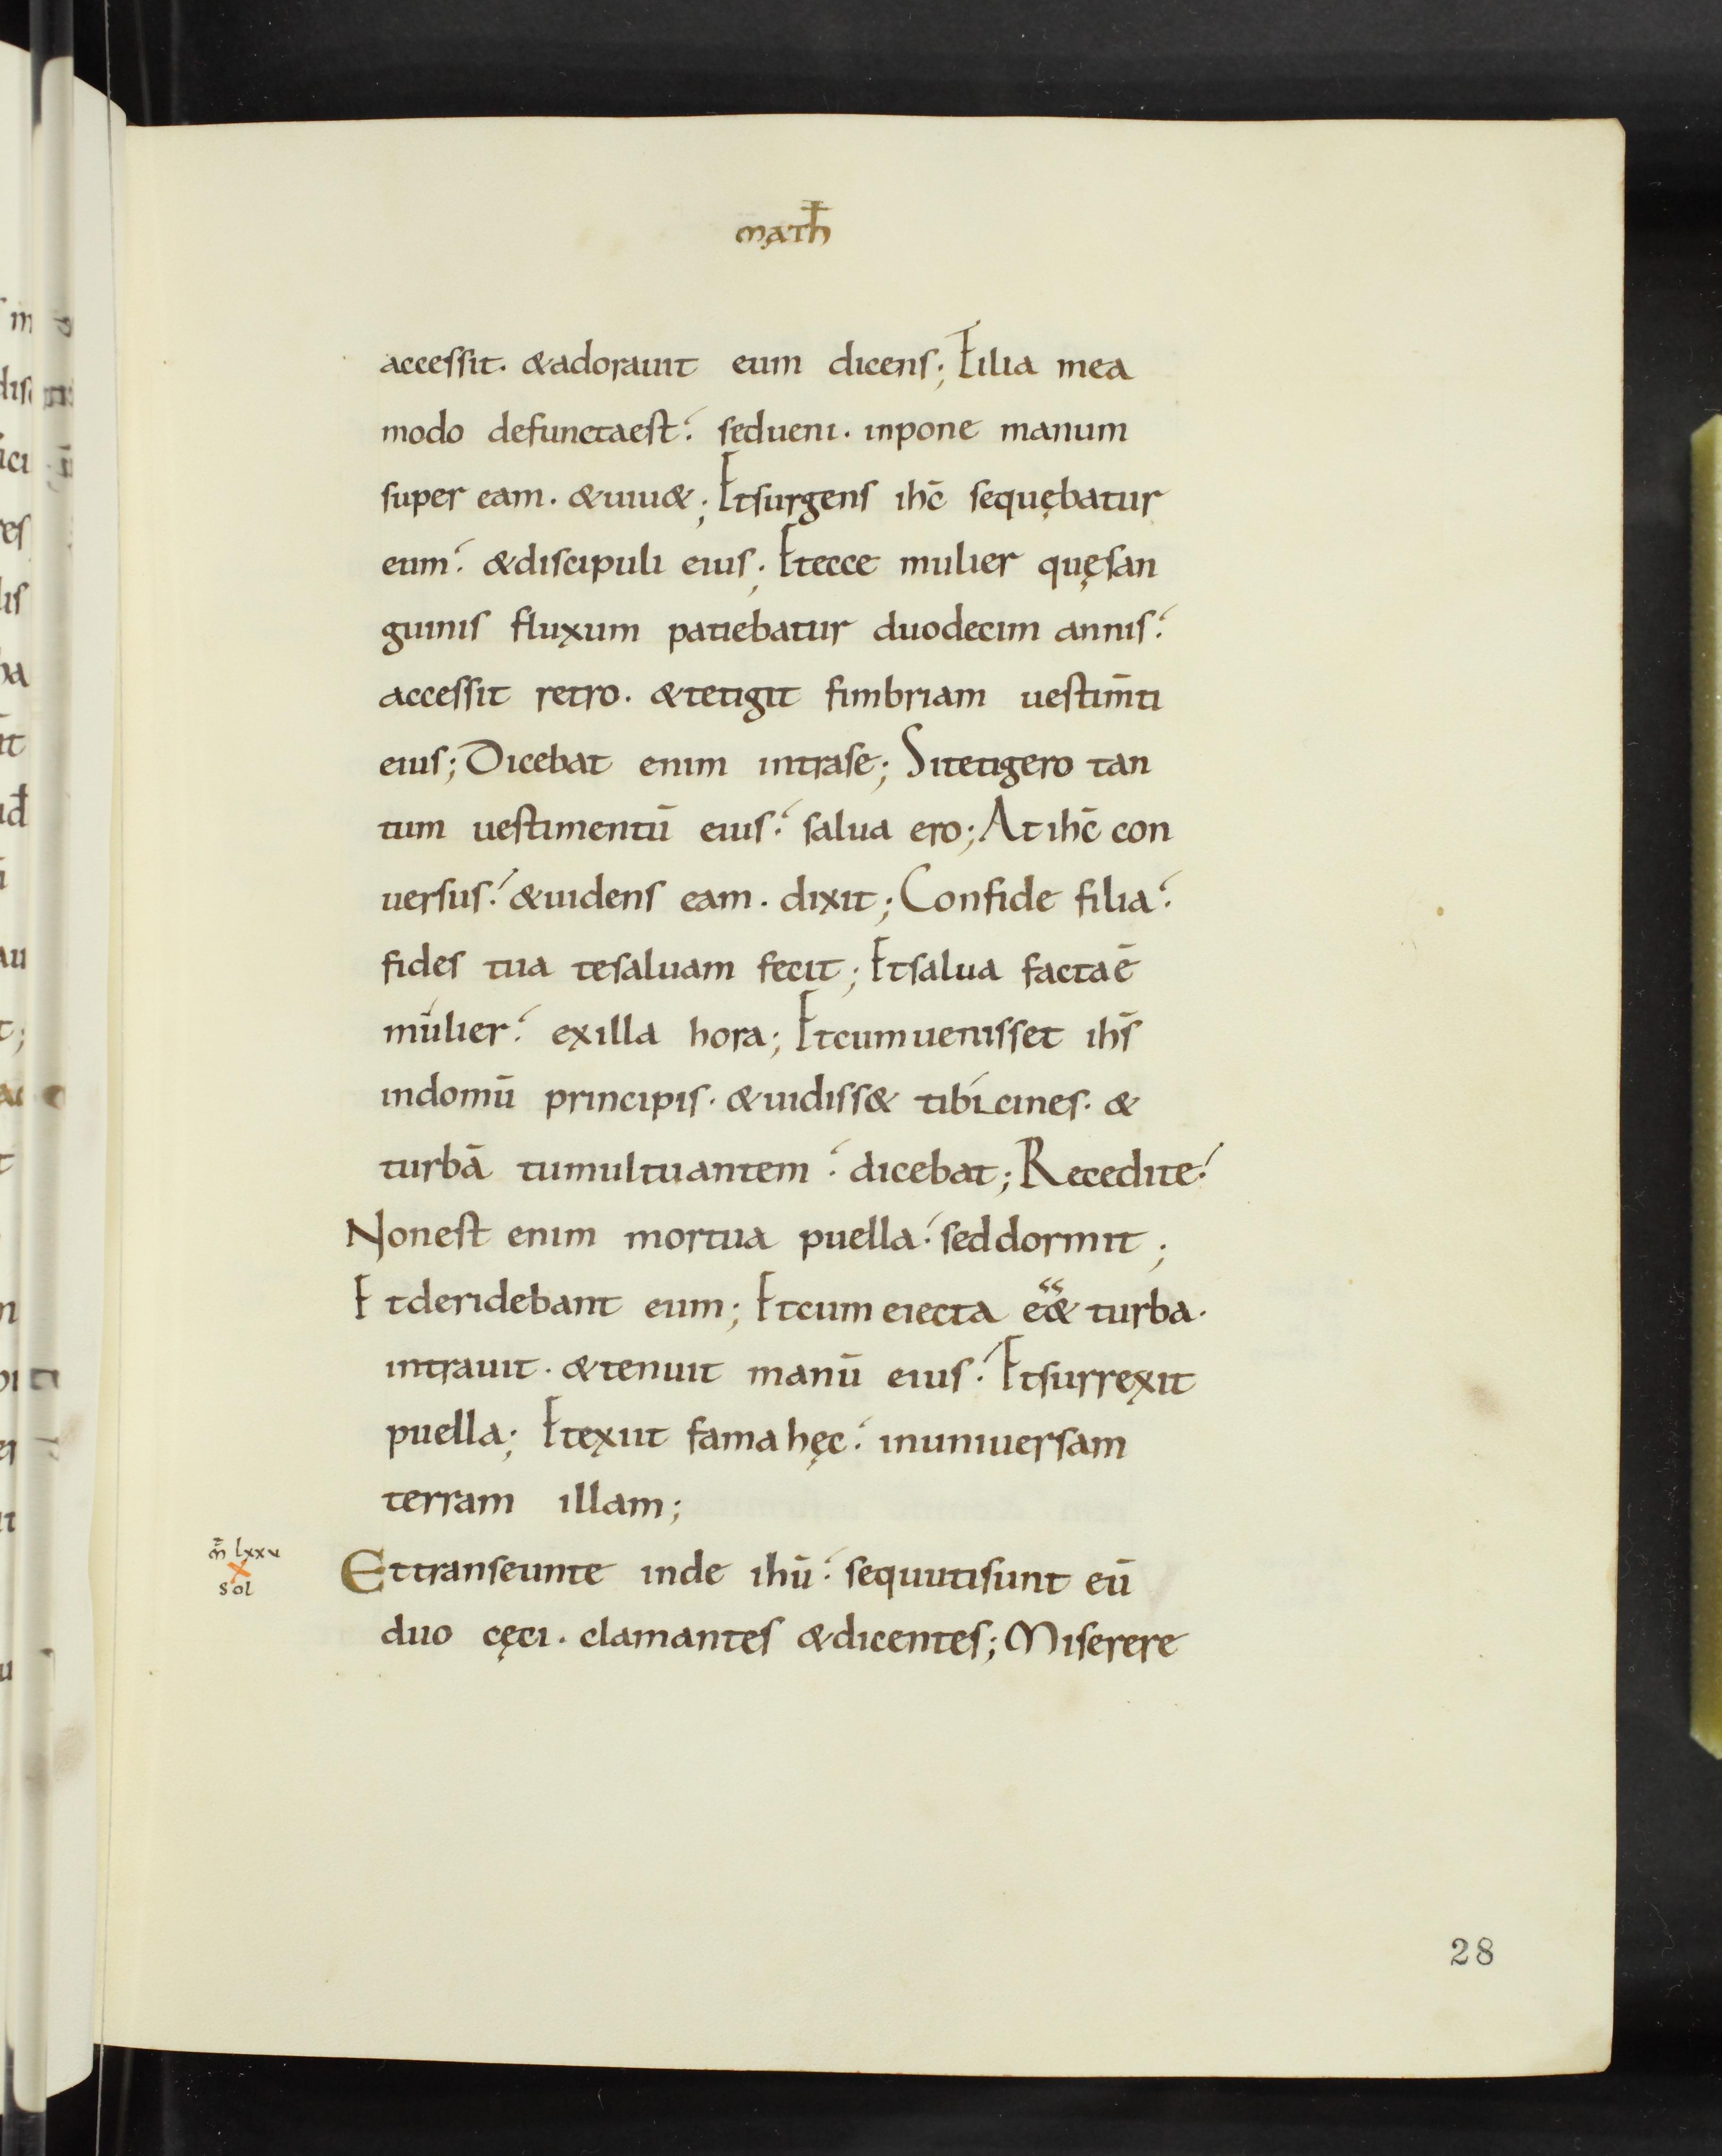 math̄
accessit. &adorauit eum dicens; Filia mea
modo defunctaest. seduení. inpone manum
super eam. &uiu&; Etsurgens ihc̄ sequębatur
eum. &discipuli eius; Etecce mulier quęsan
guinis fluxum patiebatur duodecim annis.
accessit retro. &tetigit fimbriam uestim̄ti
eius; Dicebat enim intrase; Sitetigero tan
tum uestimentū eius. salua ero; At ihc̄ con
uersus. &uidens eam. dixit; Confide filia.
fides tua tesaluam fecit; Etsalua factaē
múlier. exilla hora; Etcumuenisset ihs̄
indomū principis. &uidiss& tibícines. &
turbā tumultuantem. dicebat; Recedite.
Nonest enim mortua puella. seddormit;
Etderidebant eum; Etcum eiecta eēt turba.
intrauit. &tenuit manū eius. Etsurręxit
puella; Etęxiit fama hęc. inuniuersam
terram illam;
m̄ lxxv
x
sol
Ettranseunte inde ihū. sequutisunt eū
duo cęci. clamantes &dicentes; Miserere
28